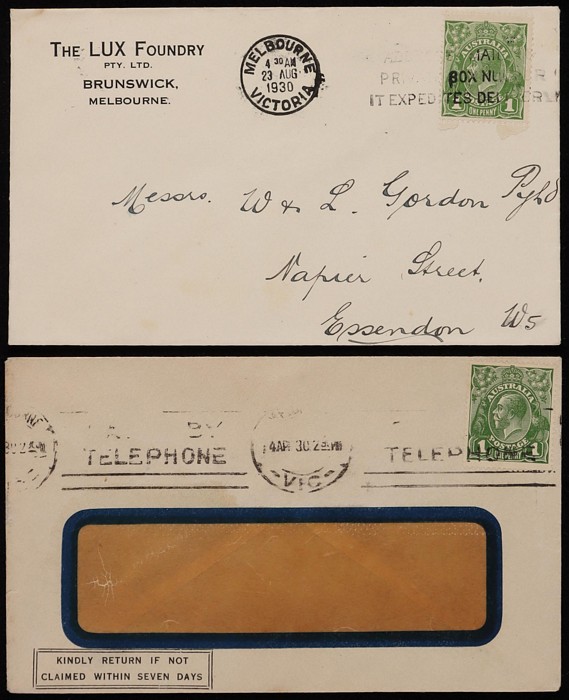 THE LUX FOUNDRY
PTY. LTD.
BRUNSWICK,
MELBOURNE.
MELBOURNE
4 30 AM
23 AUG
1930
VICTORIA
BOX NU
IT EXPEDITES DEL
AUSTRALIA
1 1
ONE PENNY
Messrs. W & L. Gordon Pty Ltd
Napier Street.
Essendon W5
BY
TELEPHONE
4 AP 30
VIC
TELEPHONE
AUSTRALIA
1 1
POSTAGE
ONE PENNY
KINDLY RETURN IF NOT
CLAIMED WITHIN SEVEN DAYS